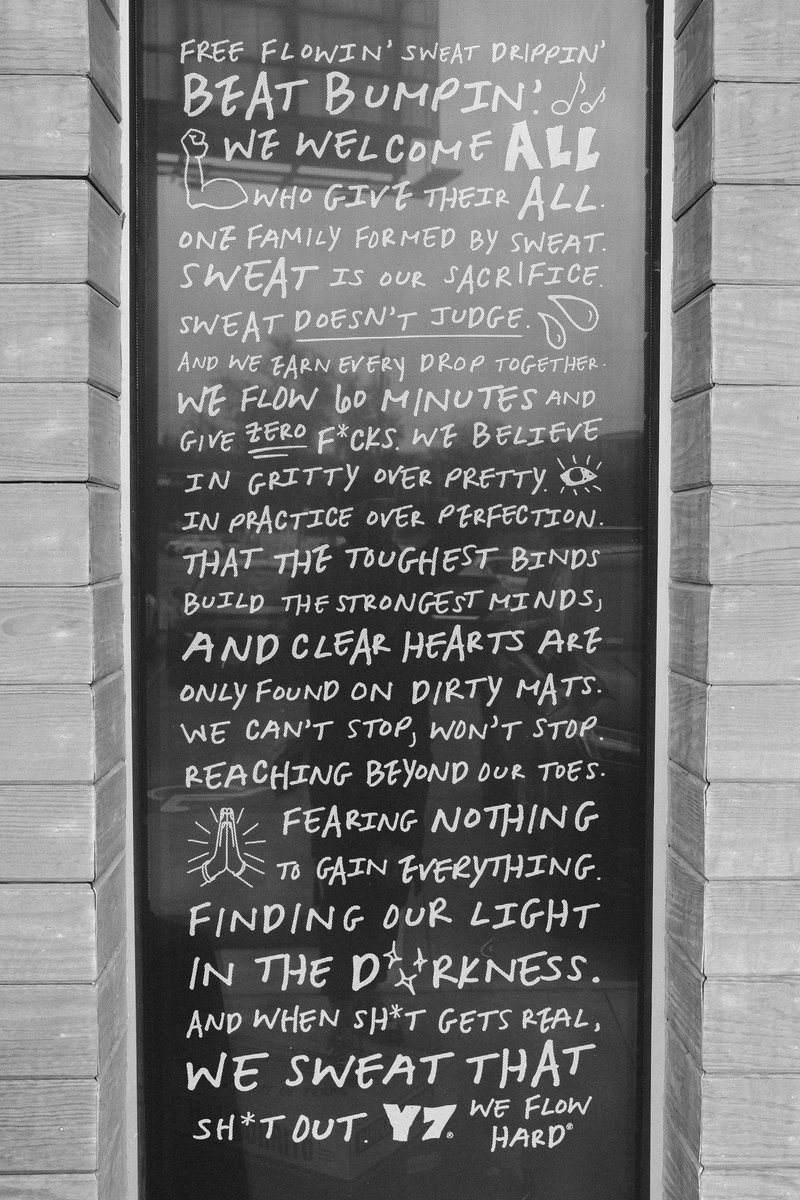 FREE FLOWIN' SWEAT DRIPPIN'
BEAT BUMPIN'.
WE WELCOME ALL
WHO GIVE THEIR ALL.
ONE FAMILY FORMED BY SWEAT.
SWEAT IS OUR SACRIFICE.
SWEAT DOESN'T JUDGE.
AND WE EARN EVERY DROP TOGETHER.
WE FLOW 60 MINUTES AND
GIVE ZERO F*CKS. WE BELIEVE
IN GRITTY OVER PRETTY.
IN PRACTICE OVER PERFECTION.
THAT THE TOUGHEST BINDS
BUILD THE STRONGEST MINDS,
AND CLEAR HEARTS ARE
ONLY FOUND ON DIRTY MATS.
WE CAN'T STOP, WON'T STOP.
REACHING BEYOND OUR TOES.
FEARING NOTHING
TO GAIN EVERYTHING.
FINDING OUR LIGHT
IN THE D✨RKNESS.
AND WHEN SH*T GETS REAL,
WE SWEAT THAT
SH*T OUT. Y7® WE FLOW
HARD®